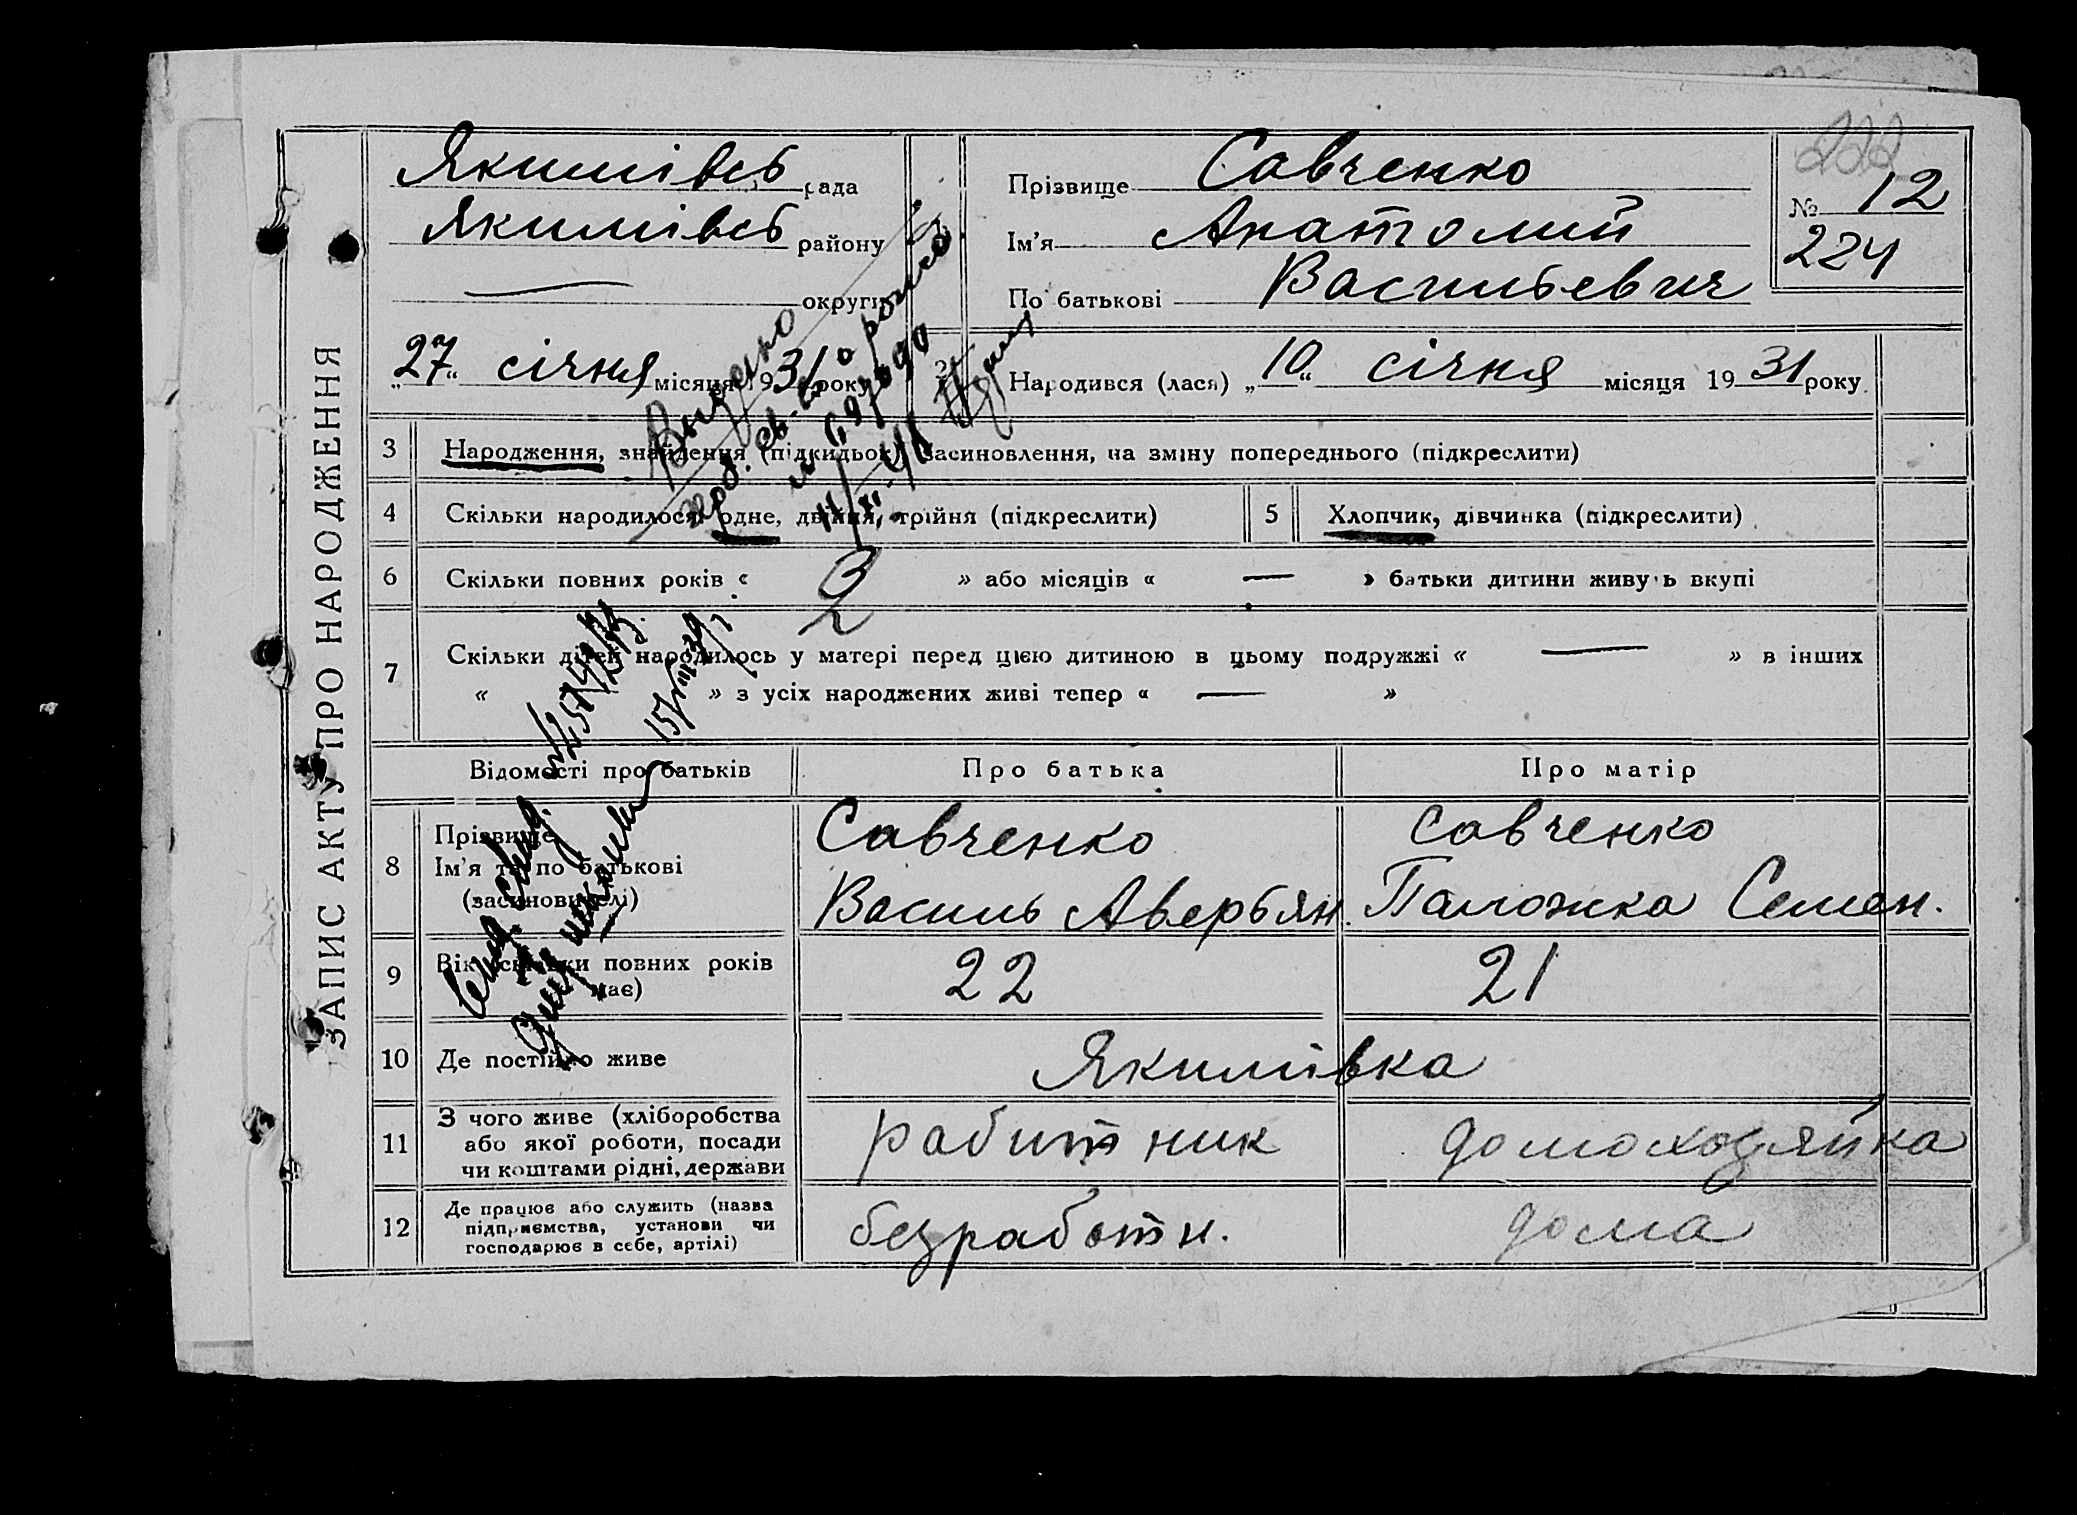 222
Якимівсь рада
Якимівсь району
округи
Прізвище Савченко
Ім'я Анатолий
По батькові Васильевич
№ 12
224
„27“ січня місяця 1931 року
2 Народився (лася) „10“ січня місяця 1931 року
3 Народження, знайдення (підкидьок), засиновлення, на зміну попереднього (підкреслити)
4 Скільки народилося: одне, двійня, трійня (підкреслити)
5 Хлопчик, дівчинка (підкреслити)
6 Скільки повних років « » або місяців « — » батьки дитини живуть вкупі
7 Скільки дітей народилось у матері перед цією дитиною в цьому подружжі « — » в інших
« » з усіх народжених живі тепер « — »
Выдано
о рожд
15/VIII
Відомості про батьків
Про батька
Про матір
8 Прізвище
Ім'я та по батькові
(засиновителі)
Савченко
Василь Аверьян.
Савченко
Палажка Семен.
9 Вік (скільки повних років має)
22
21
10 Де постійно живе
Якимівка
11 З чого живе (хліборобства
або якої роботи, посади
чи коштами рідні, держави
работник
домохозяйка
12 Де працює або служить (назва
підприємства, установи чи
господарює в себе, артілі)
безработн.
дома
ЗАПИС АКТУ ПРО НАРОДЖЕННЯ